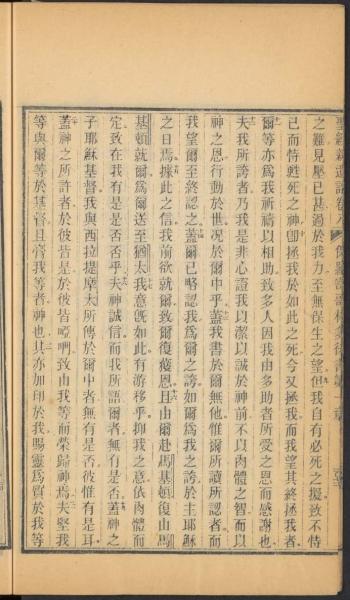 之難見壓已甚過於我力至無保生之望但我自有必死之擬致不恃
己而恃甦死之神卽拯我於如此之死今又拯我而我望其終拯我者
爾等亦爲我祈禱以相助致多人因我由多助者所受之恩而感謝也
夫我所誇者乃我是非心證我以潔以誠於神前不以肉體之智而以
神之恩行動於世況於爾中乎蓋我書於爾無他惟爾所讀所認者而
我望爾至終認之蓋爾已略認我爲爾之誇如爾爲我之誇於主耶穌
之日焉據此之信我前欲就爾致爾復獲恩且由爾赴馬基頓復由馬
基頓就爾爲爾送至猶太我意旣如此有游移乎抑我之意依肉體而
定致在我有是是否否乎夫神誠信而我所語爾者無有是否蓋神之
子耶穌基督我與西拉提摩太所傳於爾中者無有是否彼惟有是耳
蓋神之所許者於彼皆是於彼皆啞𠵽致由我等而榮歸神焉夫堅我
等與爾等於基督且膏我等者神也其亦加印於我賜靈爲質於我等